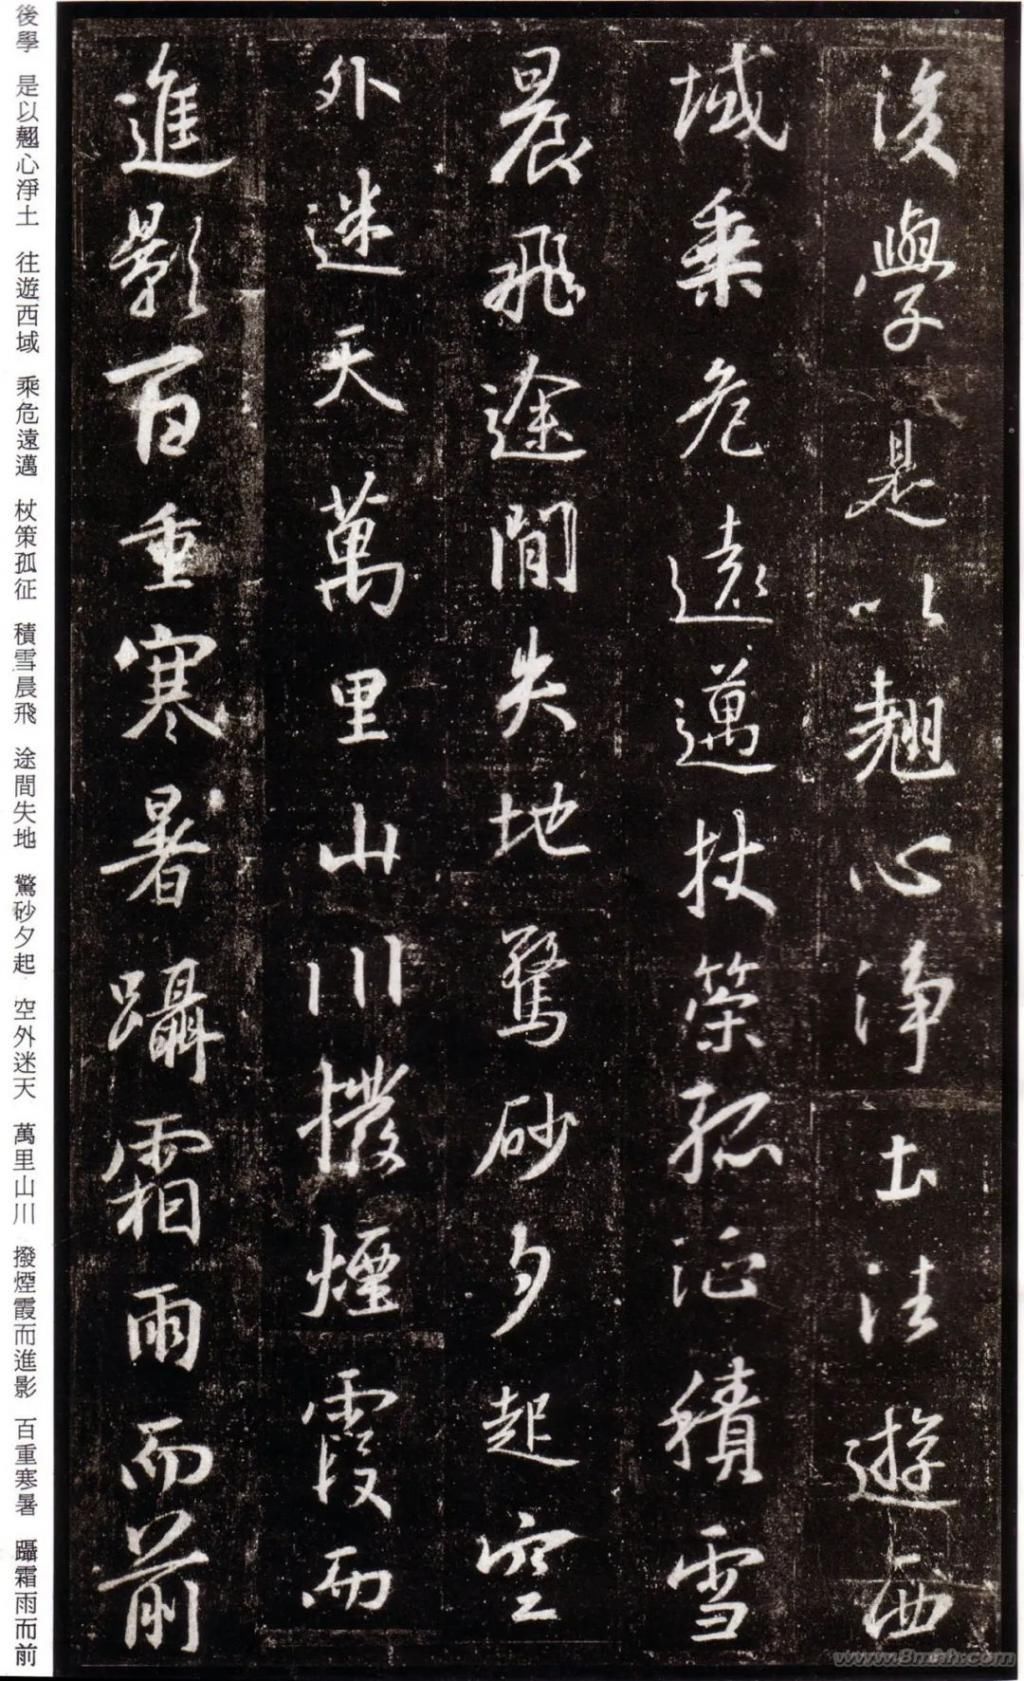 後學是以翹心淨土往遊西
域乘危遠邁杖策孤征積雪
晨飛途間失地驚砂夕起空
外迷天萬里山川撥煙霞而
進影百重寒暑躡霜雨而前
後學 是以翹心淨土 往遊西域 乘危遠邁 杖策孤征 積雪晨飛 途間失地 驚砂夕起 空外迷天 萬里山川 撥煙霞而進影 百重寒暑 躡霜雨而前